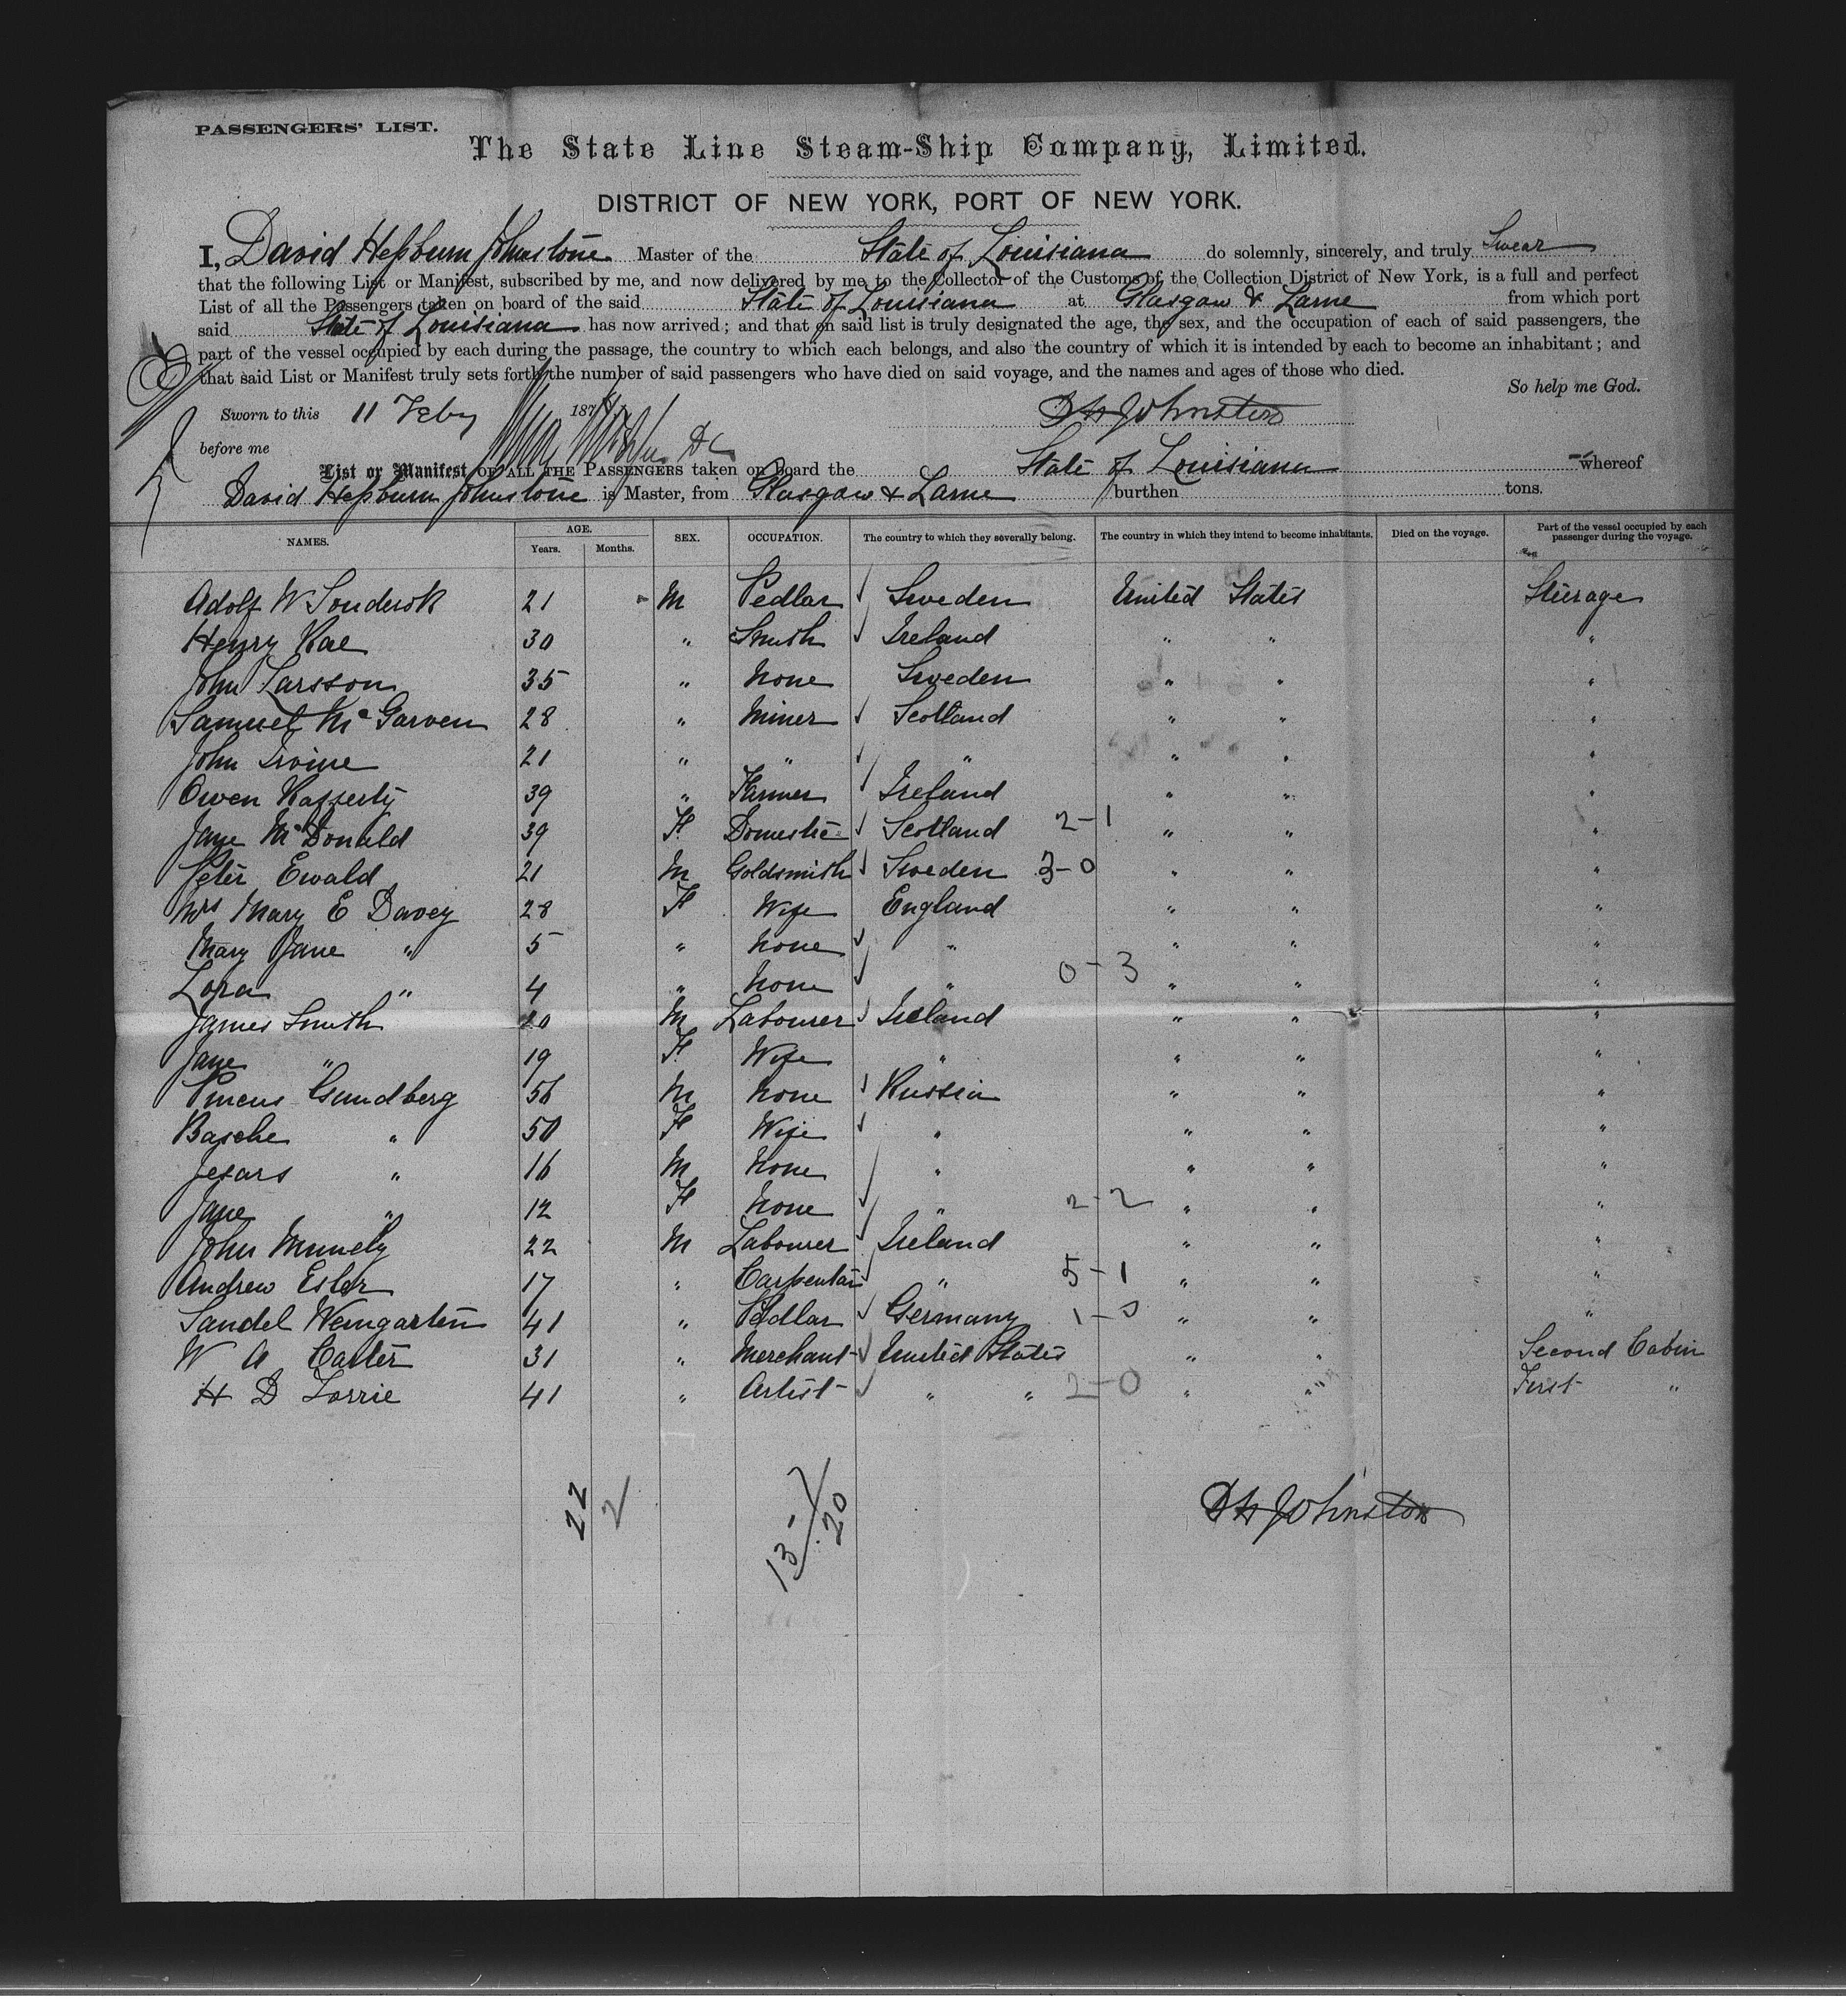 PASSENGERS' LIST.
The State Line Steam-Ship Company, Limited.
DISTRICT OF NEW YORK, PORT OF NEW YORK.
I, David Hepburn Johnstone Master of the State of Louisiana do solemnly, sincerely, and truly Swear
that the following List or Manifest, subscribed by me, and now delivered by me to the Collector of the Customs of the Collection District of New York, is a full and perfect
List of all the Passengers taken on board of the said State of Louisiana at Glasgow & Larne from which port
said State of Louisiana has now arrived; and that on said list is truly designated the age, the sex, and the occupation of each of said passengers, the
part of the vessel occupied by each during the passage, the country to which each belongs, and also the country of which it is intended by each to become an inhabitant; and
that said List or Manifest truly sets forth the number of said passengers who have died on said voyage, and the names and ages of those who died.
So help me God.
Sworn to this 11 Feby 187 D H Johnston
before me
List or Manifest OF ALL THE PASSENGERS taken on board the State of Louisiana whereof
David Hepburn Johnstone is Master, from Glasgow & Larne burthen tons.
NAMES. AGE. Years. Months. SEX. OCCUPATION. The country to which they severally belong. The country in which they intend to become inhabitants. Died on the voyage. Part of the vessel occupied by each passenger during the voyage.
Adolf W 21 M Pedlar Sweden United States Steerage
Henry Rae 30 " Smith Ireland " " "
John Larsson 35 " None Sweden " " "
Samuel McGarven 28 " Miner Scotland " " "
John Irvine 21 " " " " " "
Owen Rafferty 39 " Farmer Ireland " " "
Jane McDonald 39 F Domestic Scotland 2-1 " " "
Peter Ewald 21 M Goldsmith Sweden 3-0 " " "
Mrs Mary E Davey 28 F Wife England " " "
Mary Jane " 5 " None " " " "
Lora " 4 " None " 0-3 " " "
James Smith 20 M Labourer Ireland " " "
Jane " 19 F Wife " " " "
Pincus Gundberg 56 M None Russia " " "
Basche " 50 F Wife " " " "
" 16 M None " " " "
Jane " 12 F None " 2-2 " " "
John Munnely 22 M Labourer Ireland " " "
Andrew Esler 17 " Carpenter " 5-1 " " "
Sandel Weingarten 41 " Pedlar Germany 1-0 " " "
W A Carter 31 " Merchant United States " " Second Cabin
H D Lorrie 41 " Artist " " 2-0 " " First "
22 2 13-7 20
D H Johnston